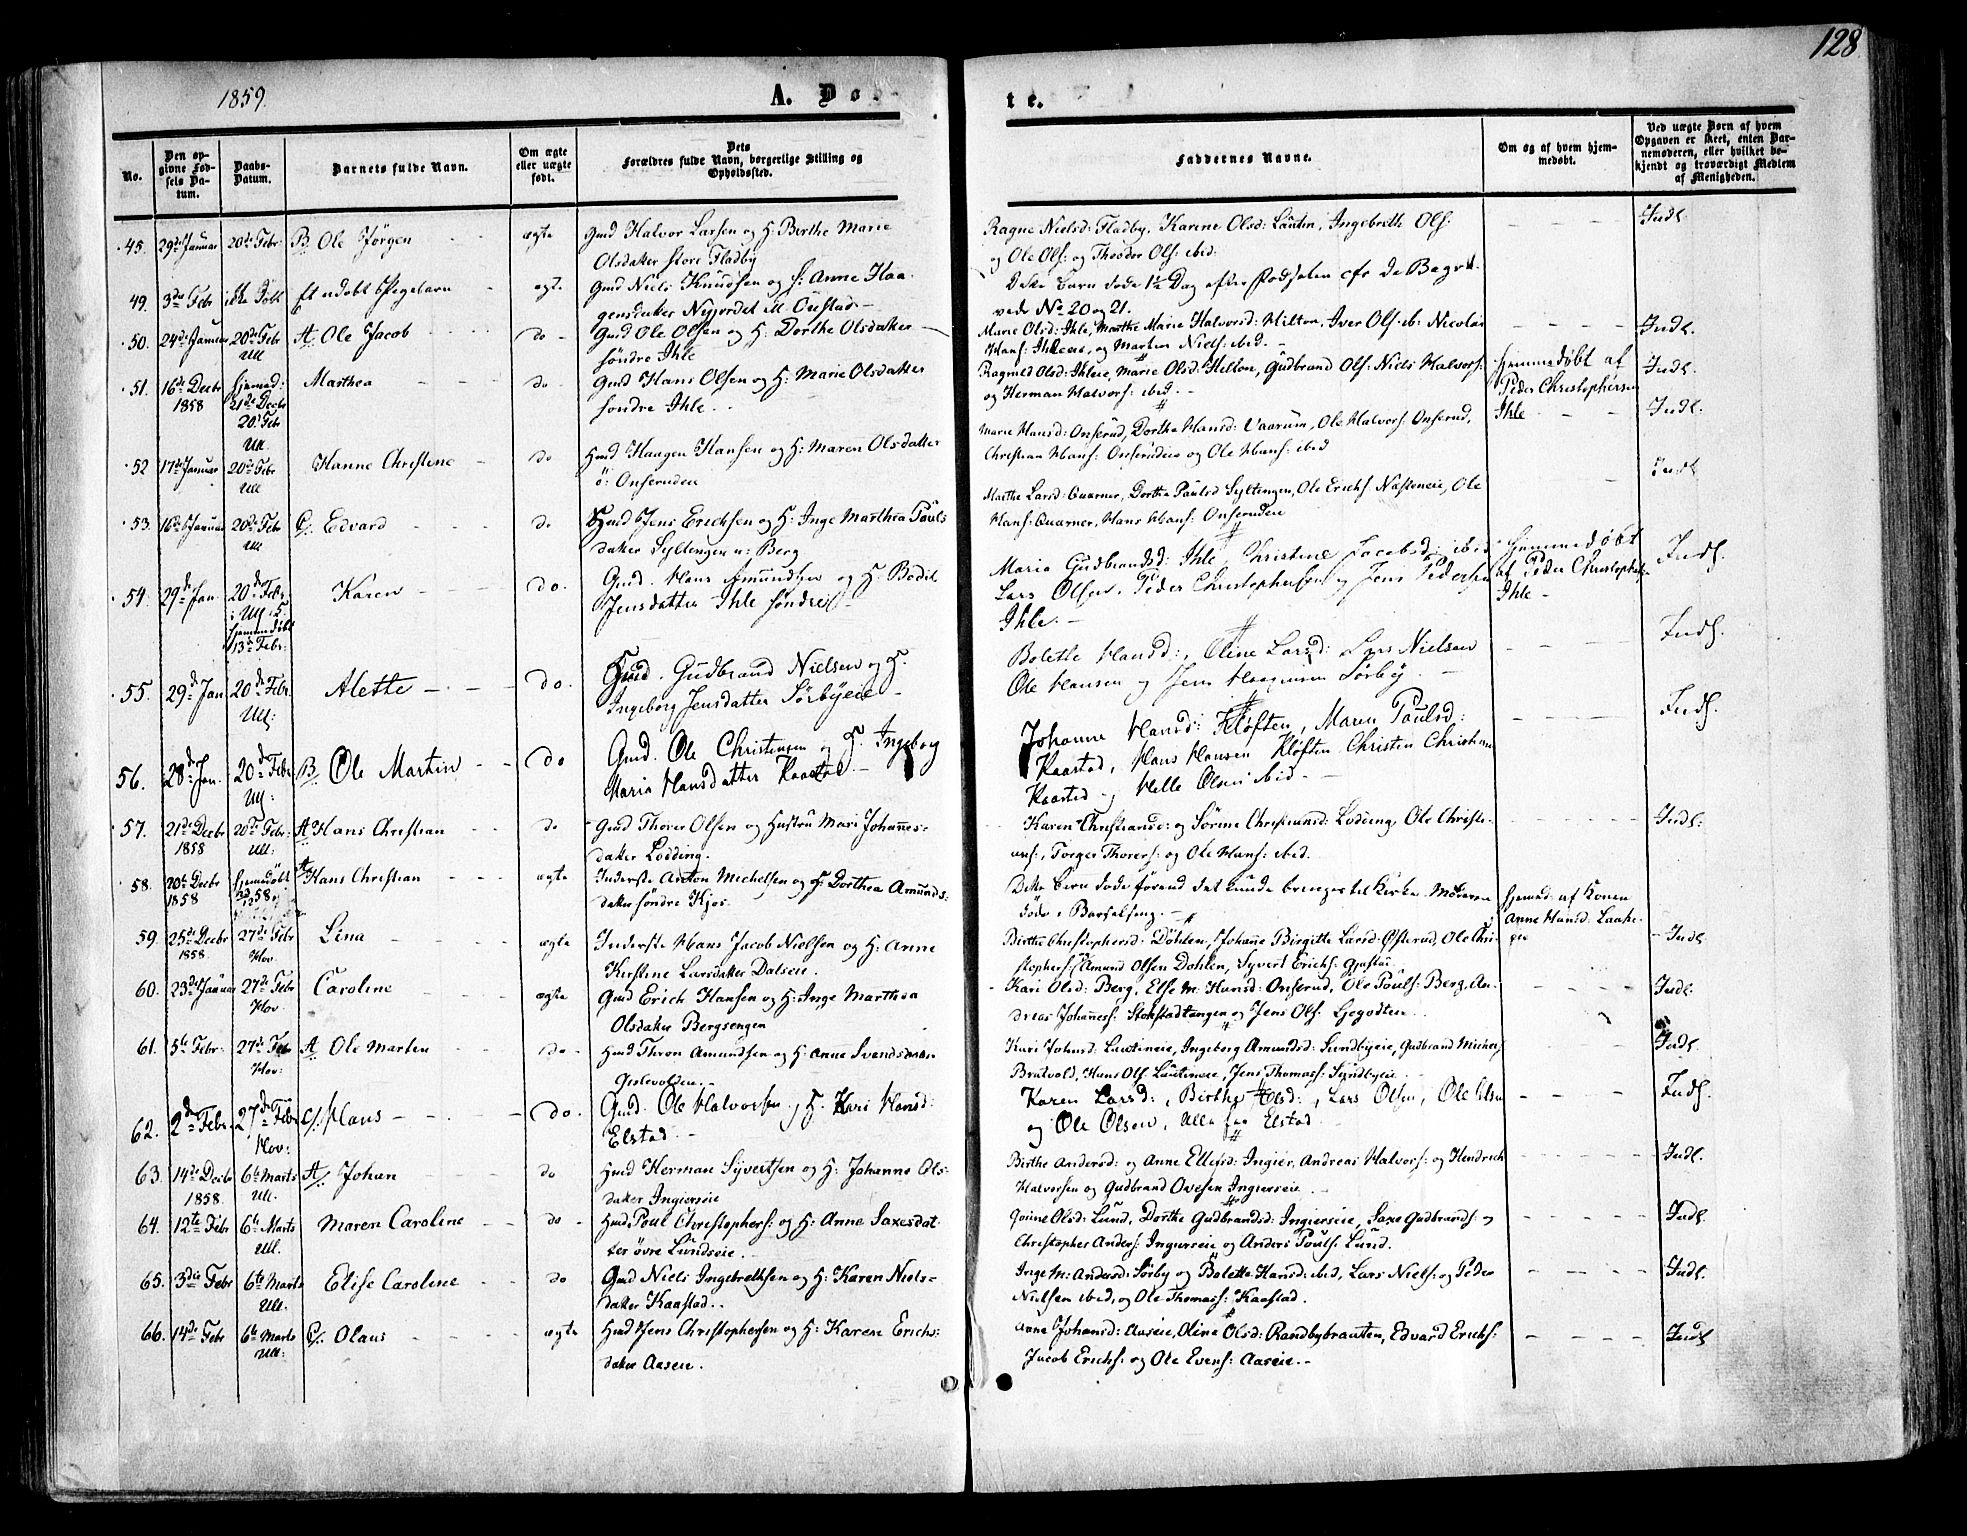 128
1859.
A. Dø-
te.
No.
Den opgivne Fødsels Datum.
Daabs-Datum.
Barnets fulde Navn.
Om ægte eller uægte født.
Dets Forældres fulde Navn, borgerlige Stilling og Opholdssted.
Faddernes Navne.
Om og af hvem hjemmedøbt.
Ved uægte Børn af hvem Opgaven er skeet, enten Barnemoderen, eller hvilket bekjendt og troværdigt Medlem af Menigheden.
45. 29de Januar 20de Febr B. Ole Jørgen ægte Gmd Halvor Larsen og H: Berthe Marie
Olsdatter store Fladby
Ragne Nielsd: Fladby, Karine Olsd: Lautin, Ingebreth Ols:
og Ole Ols: og Theodor Ols: ibid:
Indl.
49. 3die Febr ikke døbt Et udøbt Pigebarn ægte Gmd Niels Knudsen og H: Anne Haa-
gensdatter Nyjordet
Dette Barn døde 1½ Dag efter Fødselen cfr de Begra-
vede No 20 og 21.
50. 24de Januar 20de Febr Ull A. Ole Jacob do Gmd Ole Olsen og H: Dorthe Olsdatter
søndre Ihle
Marie Olsd: Ihle, Marthe Marie Halvorsd: Hilton, Iver Ols: ib: Nicolai
Hans: Ihleeie, og Martin Niels: ibid.
Indl.
51. 16de Decbr 1858 hjemmed: 21de Decbr 20de Febr Ull Marthea do Gmd Hans Olsen og H: Marie Olsdatter
søndre Ihle.
Ragnild Olsd: Ihleie, Marie Olsd: Hilton, Gudbrand Ols: Niels Halvors:
og Herman Halvors: ibid.
Hjemmedøbt af
Peder Christophersen
Ihle
Indl.
52 17de Januar 20de Febr Ull Hanne Christine do Hmd Haagen Hansen og H: Maren Olsdatter
ø: Onserudeie
Marie Hansd: Onserud, Dorthe Hansd: Vaarum, Ole Halvors: Onserud,
Christian Hans: Onserudeie og Ole Hans: ibid
Indl.
53. 16de Januar 20de Febr Ull C. Edvard do Hmd Jens Erichsen og H: Inge Marthea Pouls
datter Syltengen u: Berg
Marthe Larsd: Quarner, Dorthe Paulsd Syltengen, Ole Erichs: Næsteneie, Ole
Hans: Quarner, Hans Hans: Onserudeie
Indl
54. 29de Jan. 20de Febr. i Ull. hjemmedøbt 13de Febr. Karen do. Gmd. Hans Amundsen og H. Bodil
Jensdatter Ihle søndre
Maria Gudbrandsd: Ihle Christine Jacobsd: ibid
Lars Olsen, Peder Christophersen og Jens Pedersen
Ihle.
Hjemmedøbt
af Peder Christophers.
Ihle
Indl.
55. 29de Jan 20de Febr. Ull: Alette do. Gmd. Gudbrand Nielsen og H.
Ingeborg Jensdatter Sørbyeie
Bolette Hansd:, Oline Larsd: Lars Nielsen
Ole Hansen og Jens Haagensen Sørby.
Indl.
56. 28de Jan. 20de Febr Ull: B. Ole Martin do Gmd. Ole Christensen og H. Ingeborg
Maria Hansdatter Kaastad
Johanne Hansd: Kløften, Maren Poulsd:
Kaastad, Hans Hansen Kløften Christen Christians
Kaastad og Helle Olsen ibid
Indl.
57. 21de Decbr 1858 20de Febr: Ull: A Hans Christian do Gmd Thorer Olsen og Hustru Mari Johannes-
datter Lodding.
Karen Christiansd: og Sørine Christiansd: Lodding, Ole Christi-
ans:, Torger Thorers: og Ole Hans: ibid.
Indl:
58. 20de Decbr 1858 hjemdøbt A Hans Christian ægte Inderste Anton Michelsen og H. Dorthea Amunds-
datter søndre Kjos.
Dette Barn døde førend det kunde bringes til Kirke. Moderen
døde i Barselseng.
hjemd: af Konen
Anne Hansd. Laake-
eie
59. 25de Decbr 1858. 27de Febr Hov. Lina ægte Inderste Hans Jacob Nielsen og H: Anne
Kirstine Larsdatter Dalseie.
Birthe Christophersd: Døhlen, Johanne Birgitte Larsd: Østerud, Ole Chri-
stophers:, Amund Olsen Dohlen, Syvert Erichs: Gjestad
Indl
60. 23de Januar 27de Febr Hov. Caroline ægte Gmd Erich Hansen og H: Inge Marthea
Olsdatter Bergsengen
Kari Olsd: Berg, Else M: Hansd: Onserud, Ole Pouls: Berg, An-
dreas Johannes: Stokstadtangen og Jens Ols:
Indl.
61. 5te Febr. 27de Feb Hov: A. Ole Martin do Hmd Thron Amundsen og H: Anne Svendsdatter
Gislevolden.
Kari Johnsd: Lautineie, Ingeborg Amundsd: Sundbyeie, Gudbrand Michels:
Bratvold, Hans Ols: Lautineie, Jens Thomass: Sundbyeie
Indl.
62. 2de Febr. 27de Febr Hov: C. Hans do. Gmd. Ole Halvorsen, H. Kari Hansd:
Elstad.
Karen Larsd:, Birthe Olsd:, Lars Olsen, Ole Olsen
og Ole Olsen, Alle fra Elstad
Indl.
63. 14de Decbr 1858. 6te Marts Ull. A. Johan do Hmd Herman Syvertsen og H: Johanne Ols-
datter Ingierseie
Birthe Andersd: og Anne Ellefsd: Ingier, Andreas Halvors: og Hendrich
Halvorsen og Gudbrand Ovesen Ingierseie.
Indl.
64. 12te Febr 6te Marts Ull. Maren Caroline do Hmd Poul Christophers: og H: Anne Saxesdat-
ter øvre Lundseie.
Olsd: Lund, Dorthe Gudbrandsd: Ingierseie, Saxe Gudbrands: og
Christopher Anders: Ingierseie og Anders Pouls: Lund.
Indl.
65. 3die Febr 6te Marts Ull: Elise Caroline do Gmd Niels Ingebrethsen og H: Karen Niels-
datter Kaastad.
Inge M: Andersd: Sørby og Bolette Hansd: ibid, Lars Niels: og Peder
Nielsen ibid, og Ole Thomass: Kaastad.
Indl.
66. 14de Febr 6te Marts Ull: C. Olaus ægte Hmd Jens Christophersen og H: Karen Erichs-
datter Aaseie.
Anne Johansd: Aaseie, Oline Olsd: Randbybraaten, Edvard Erichs:
Jacob Erichs: og Ole Evens: Aaseie.
Indl